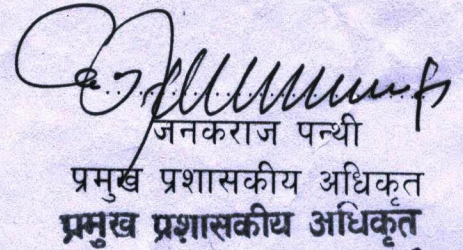 जनकराज पन्थी
प्रमुख प्रशासकीय अधिकृत
प्रमुख प्रशासकीय अधिकृत